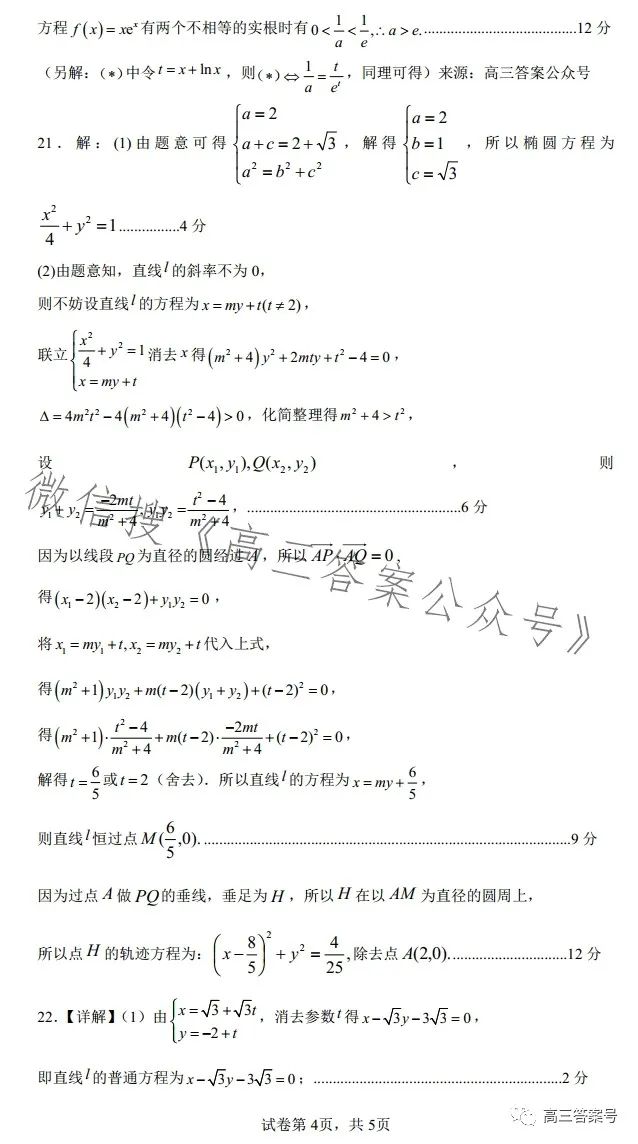 方程 f(x)=xeˣ 有两个不相等的实根时有 0<1/a<1/e,∴a>e. ......................................12 分
（另解：(*)中令 t=x+lnx，则(*)⇔1/a=t/eᵗ，同理可得）来源：高三答案公众号
21．解：(1)由题意可得 {a=2 a+c=2+√3 a²=b²+c²，解得 {a=2 b=1 c=√3，所以椭圆方程为
x²/4+y²=1................4 分
(2)由题意知，直线 l 的斜率不为 0，
则不妨设直线 l 的方程为 x=my+t(t≠2)，
联立 {x²/4+y²=1 x=my+t 消去 x 得(m²+4)y²+2mty+t²-4=0，
Δ=4m²t²-4(m²+4)(t²-4)>0，化简整理得 m²+4>t²，
设 P(x₁,y₁),Q(x₂,y₂) ，则
y₁+y₂=-2mt/(m²+4),y₁y₂=(t²-4)/(m²+4)，......................................................6 分
因为以线段 PQ 为直径的圆经过 A，所以 AP·AQ=0，
得(x₁-2)(x₂-2)+y₁y₂=0，
将 x₁=my₁+t,x₂=my₂+t 代入上式，
得(m²+1)y₁y₂+m(t-2)(y₁+y₂)+(t-2)²=0，
得(m²+1)·(t²-4)/(m²+4)+m(t-2)·(-2mt)/(m²+4)+(t-2)²=0，
解得 t=6/5 或 t=2（舍去）．所以直线 l 的方程为 x=my+6/5，
则直线 l 恒过点 M(6/5,0). ............................................................................................9 分
因为过点 A 做 PQ 的垂线，垂足为 H，所以 H 在以 AM 为直径的圆周上，
所以点 H 的轨迹方程为：(x-8/5)²+y²=4/25,除去点 A(2,0).............................12 分
22.【详解】（1）由 {x=√3+√3t y=-2+t，消去参数 t 得 x-√3y-3√3=0，
即直线 l 的普通方程为 x-√3y-3√3=0；...............................................................2 分
试卷第 4页，共 5页
微信搜《高三答案公众号》
高三答案号